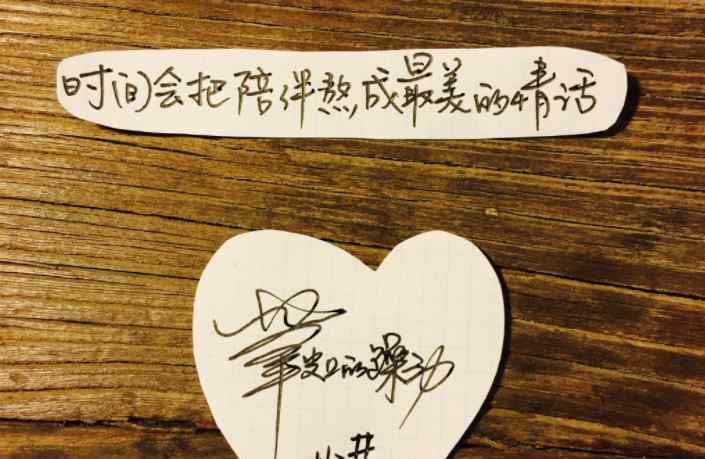 时间会把陪伴熬成最美的情话
的躁动